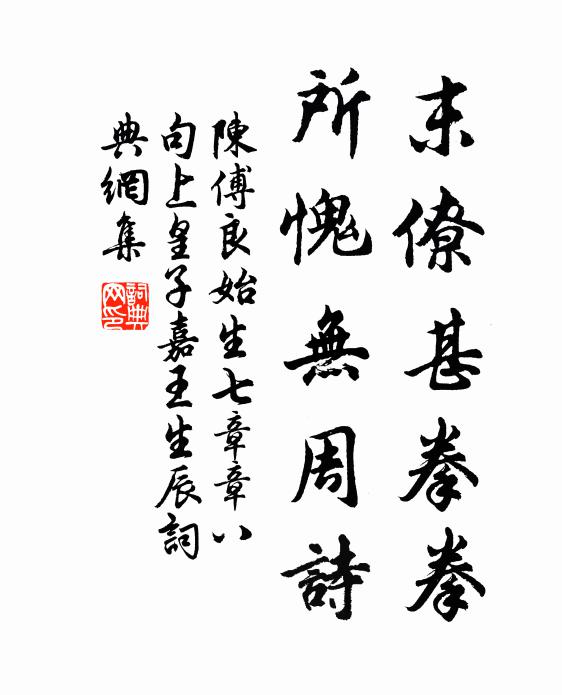 末僚甚拳拳
所愧無周詩
陳傅良始生七章章八
句上皇子嘉王生辰詞
典網集
詞典网印